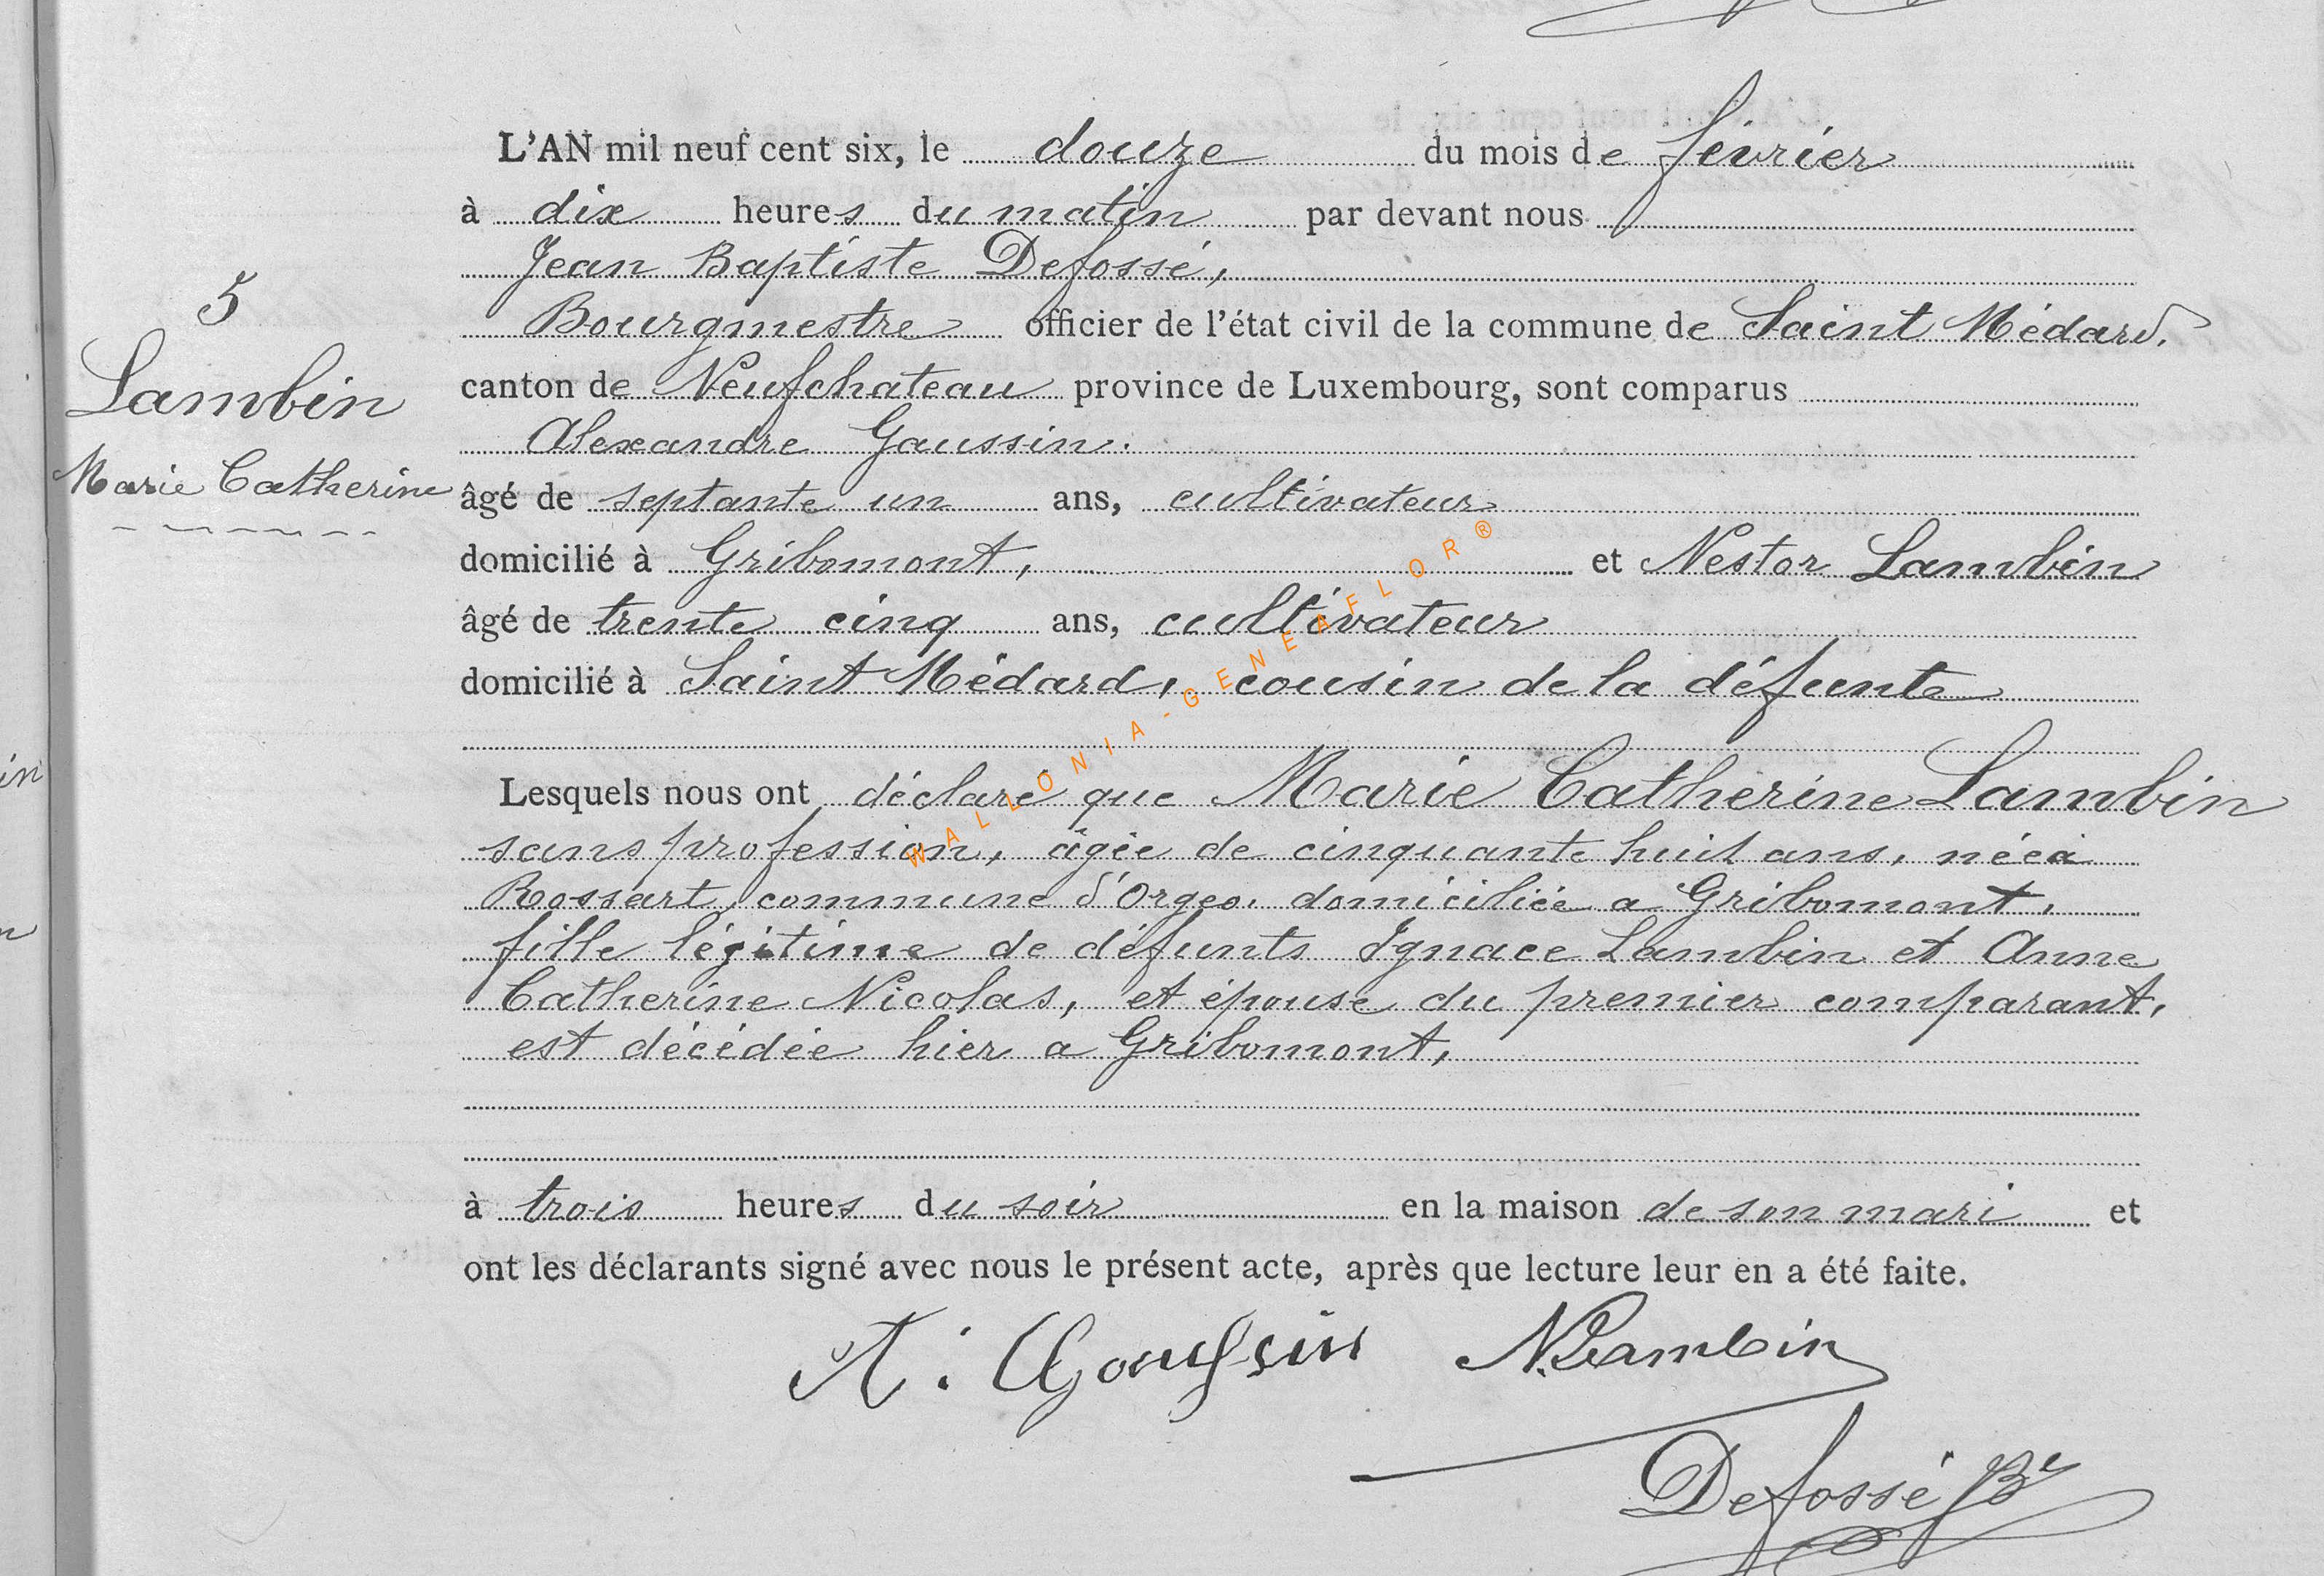 L'AN mil neuf cent six, le douze du mois de février
à dix heures du matin par devant nous
Jean Baptiste Defossé,
Bourgmestre officier de l'état civil de la commune de Saint Médard,
canton de Neufchateau province de Luxembourg, sont comparus
Alexandre Gaussin.
âgé de septante un ans, cultivateur
domicilié à Gribomont, et Nestor Lambin
âgé de trente cinq ans, cultivateur
domicilié à Saint Médard, cousin de la défunte
5
Lambin
Marie Catherine
Lesquels nous ont déclaré que Marie Catherine Lambin
sans profession, âgée de cinquante huit ans, née à
Rossart, commune d'Orgeo, domiciliée a Gribomont,
fille légitime de défunts Ignace Lambin et Anne
Catherine Nicolas, et épouse du premier comparant,
est décédée hier a Gribomont,
à trois heures du soir en la maison de son mari et
ont les déclarants signé avec nous le présent acte, après que lecture leur en a été faite.
A. Gaussin N. Lambin
Defossé Bre
WALLONIA-GENEAFLOR®